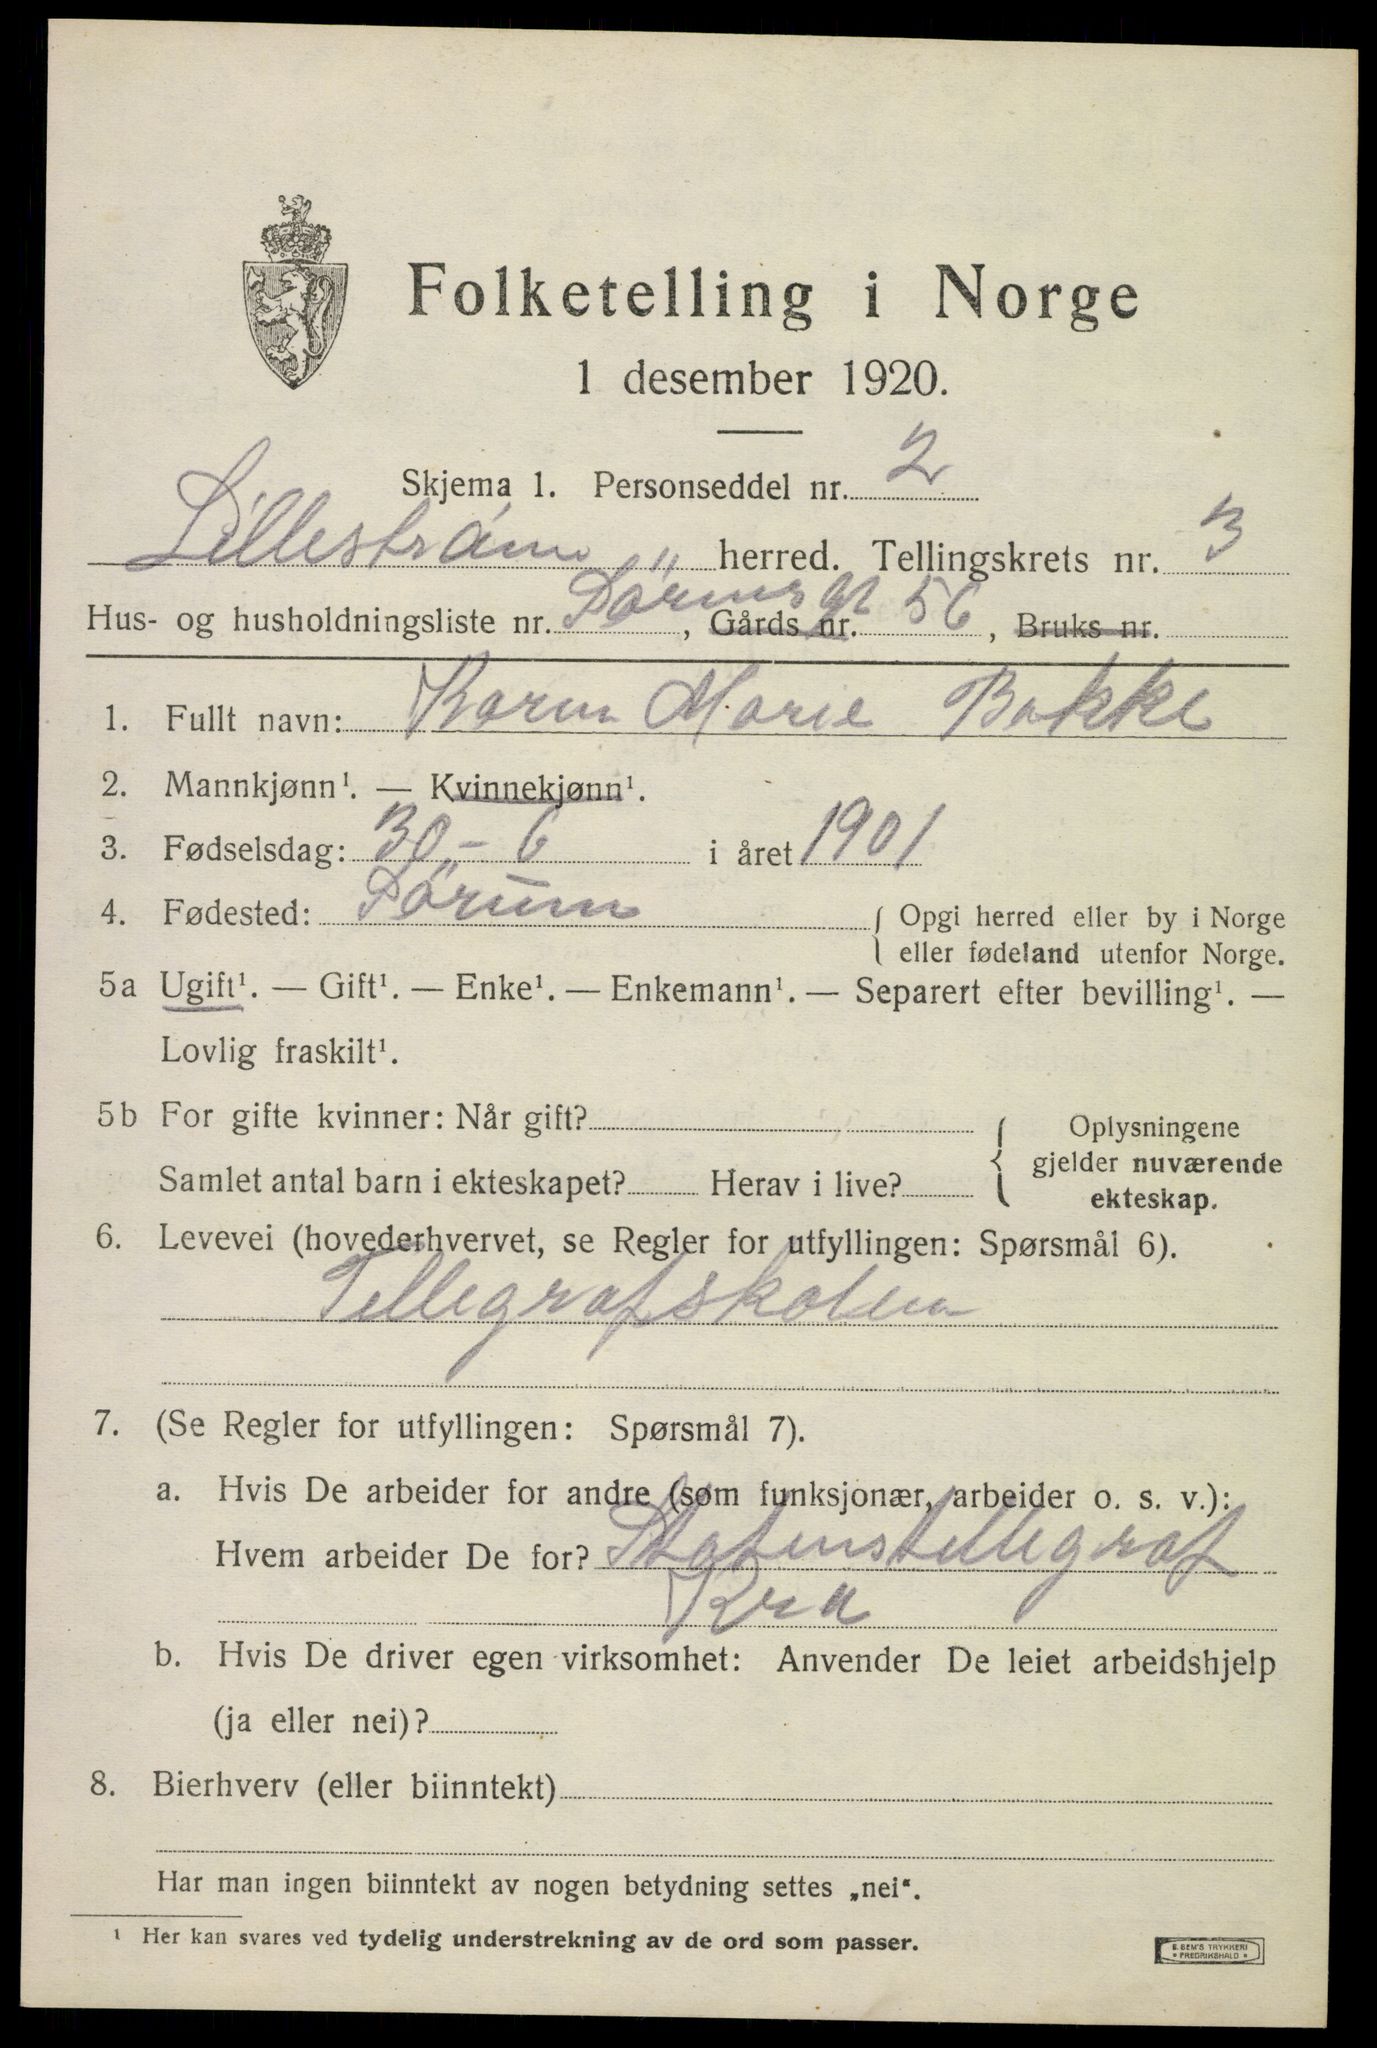 Folketelling i Norge
1 desember 1920.
Skjema 1. Personseddel nr. 2
Lillestrøm herred. Tellingskrets nr. 3
Hus- og husholdningsliste nr. Sörumsgt 56, Gårds nr. , Bruks nr.
1. Fullt navn: Karen Marie Bakke
2. Mannkjønn¹. — Kvinnekjønn¹.
3. Fødselsdag: 30 - 6 i året 1901
4. Fødested: Sörum { Opgi herred eller by i Norge
eller fødeland utenfor Norge.
5a Ugift¹. — Gift¹. — Enke¹. — Enkemann¹. — Separert efter bevilling¹. —
Lovlig fraskilt¹.
5b For gifte kvinner: Når gift? { Oplysningene
gjelder nuværende
Samlet antal barn i ekteskapet? Herav i live?
ekteskap.
6. Levevei (hovederhvervet, se Regler for utfyllingen: Spørsmål 6).
Tellegrafskolen
7. (Se Regler for utfyllingen: Spørsmål 7).
a. Hvis De arbeider for andre (som funksjonær, arbeider o. s. v.):
Hvem arbeider De for? Statenstellegraf
Kra
b. Hvis De driver egen virksomhet: Anvender De leiet arbeidshjelp
(ja eller nei)?
8. Bierhverv (eller biinntekt)
Har man ingen biinntekt av nogen betydning settes „nei“.
¹ Her kan svares ved tydelig understrekning av de ord som passer.
E. SEM'S TRYKKERI
* FREDRIKSHALD *